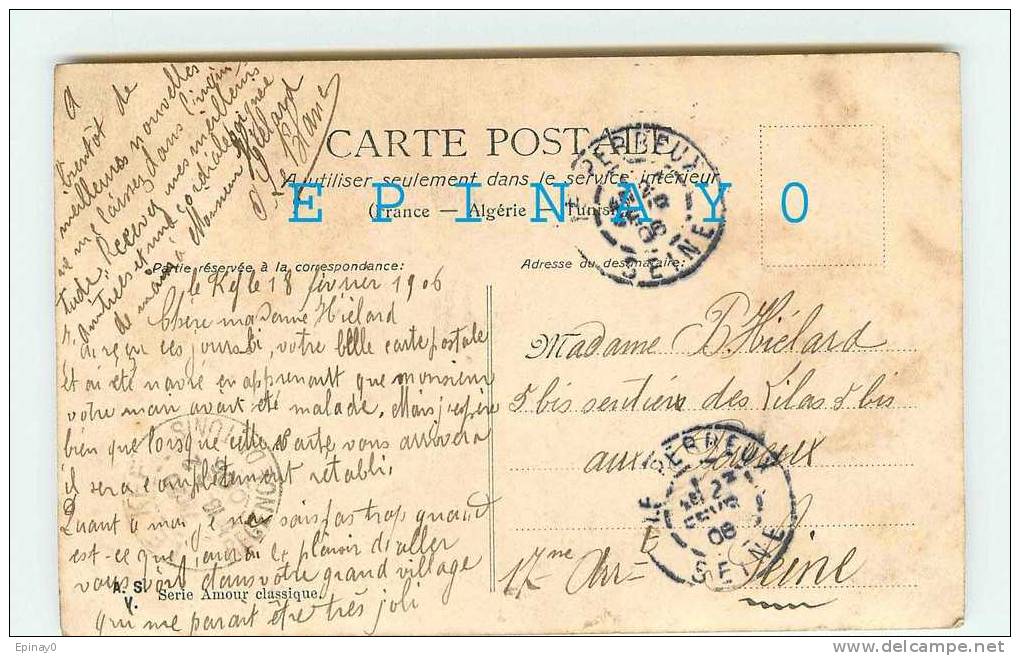 CARTE POSTALE
A utiliser seulement dans le service intérieur
(France — Algérie — Tunisie)
E P I N A Y 0
Partie réservée à la correspondance:
Adresse du destinataire:
le Kef le 18 février 1906
Chère madame Hiélard
ai reçu ces jours ci, votre belle carte postale
et ai été navré en apprenant que monsieur
votre mari avait été malade. Mais j'espère
bien que lorsque cette carte vous arrivera
il sera complètement rétabli.
Quant à moi je ne sais pas trop quand
est-ce que j'aurai le plaisir d'aller
vous voir dans votre grand village
qui me parait être très joli
A bientôt de
meilleures nouvelles
ne me laissez dans l'inqui
tude. Recevez mes meilleurs
cordiale poignée
de main à Monsieur Hiélard
Madame B. Hiélard
5 bis sentiers des Lilas 5 bis
aux Perreux
Seine
LE PERREUX
SEINE
LE PERREUX
23
FEVR
06
SEINE
A. S.
V.
Serie Amour classique.
Epinay0
delcampe.net